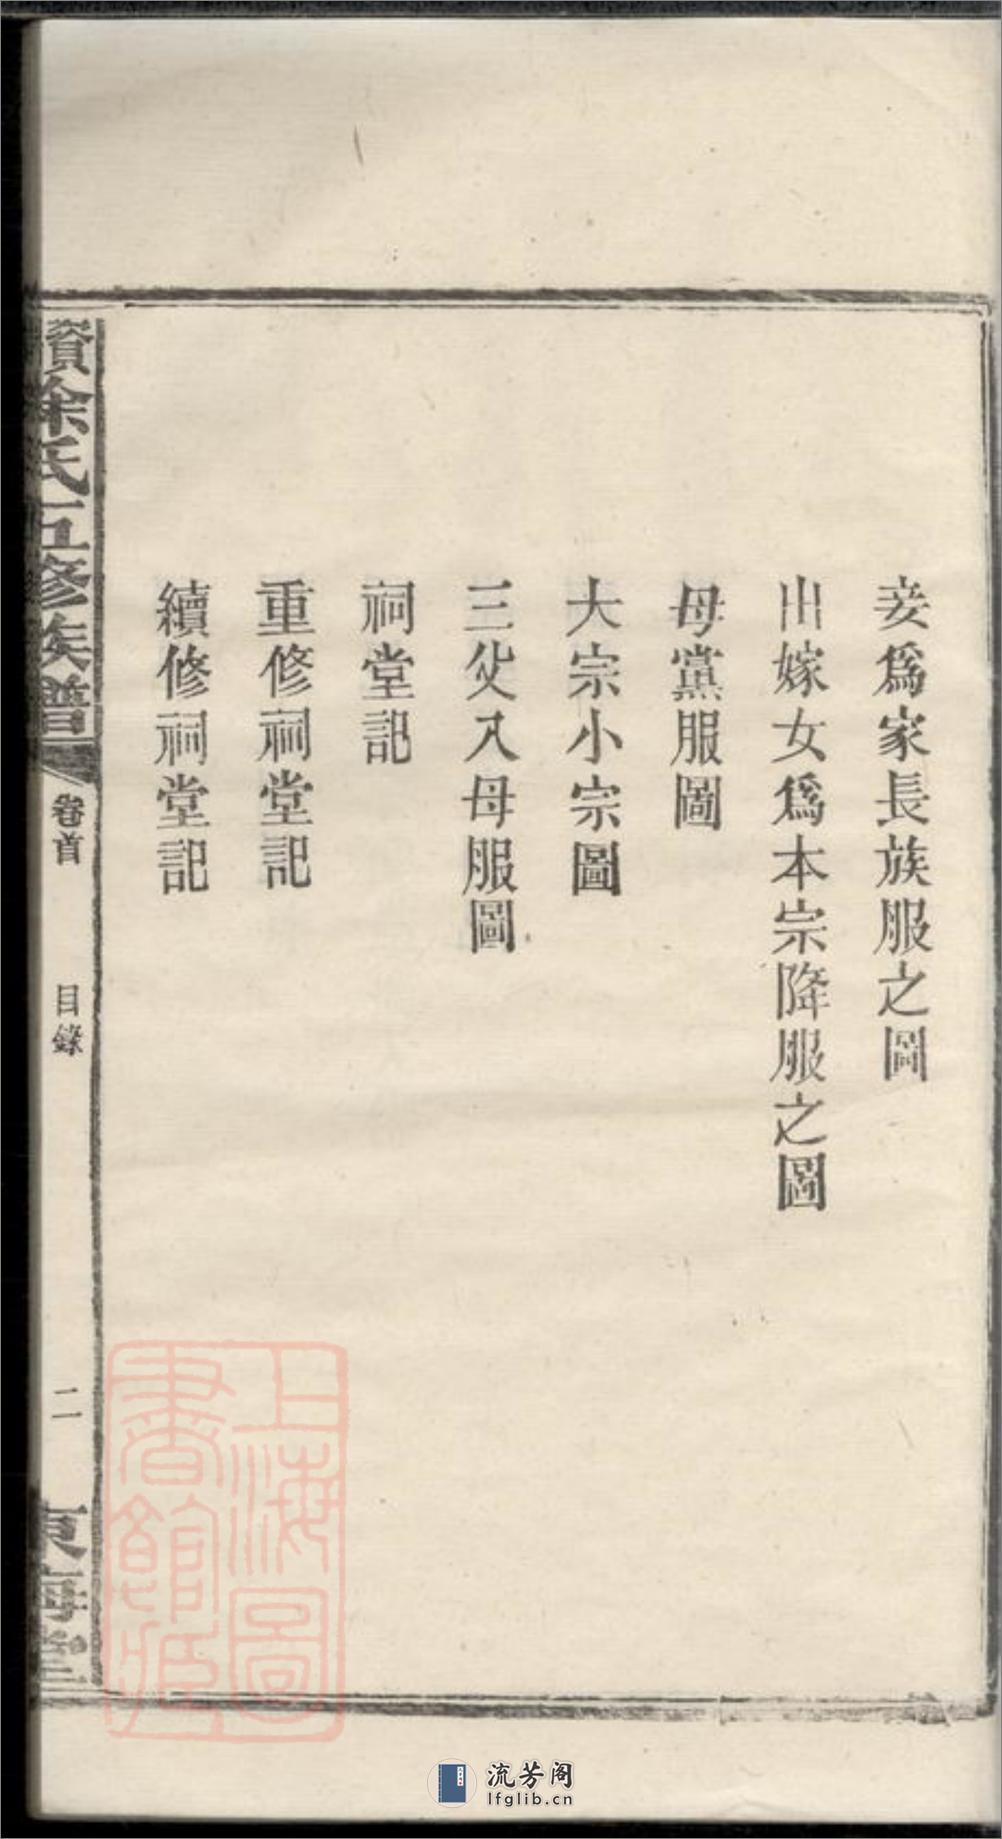 妾爲家長族服之圖
出嫁女爲本宗降服之圖
母黨服圖
大宗小宗圖
三父八母服圖
祠堂記
重修祠堂記
續修祠堂記
徐氏五修族譜
卷首
目錄
二
東海堂
上海圖書館藏
流芳阁
lfglib.cn